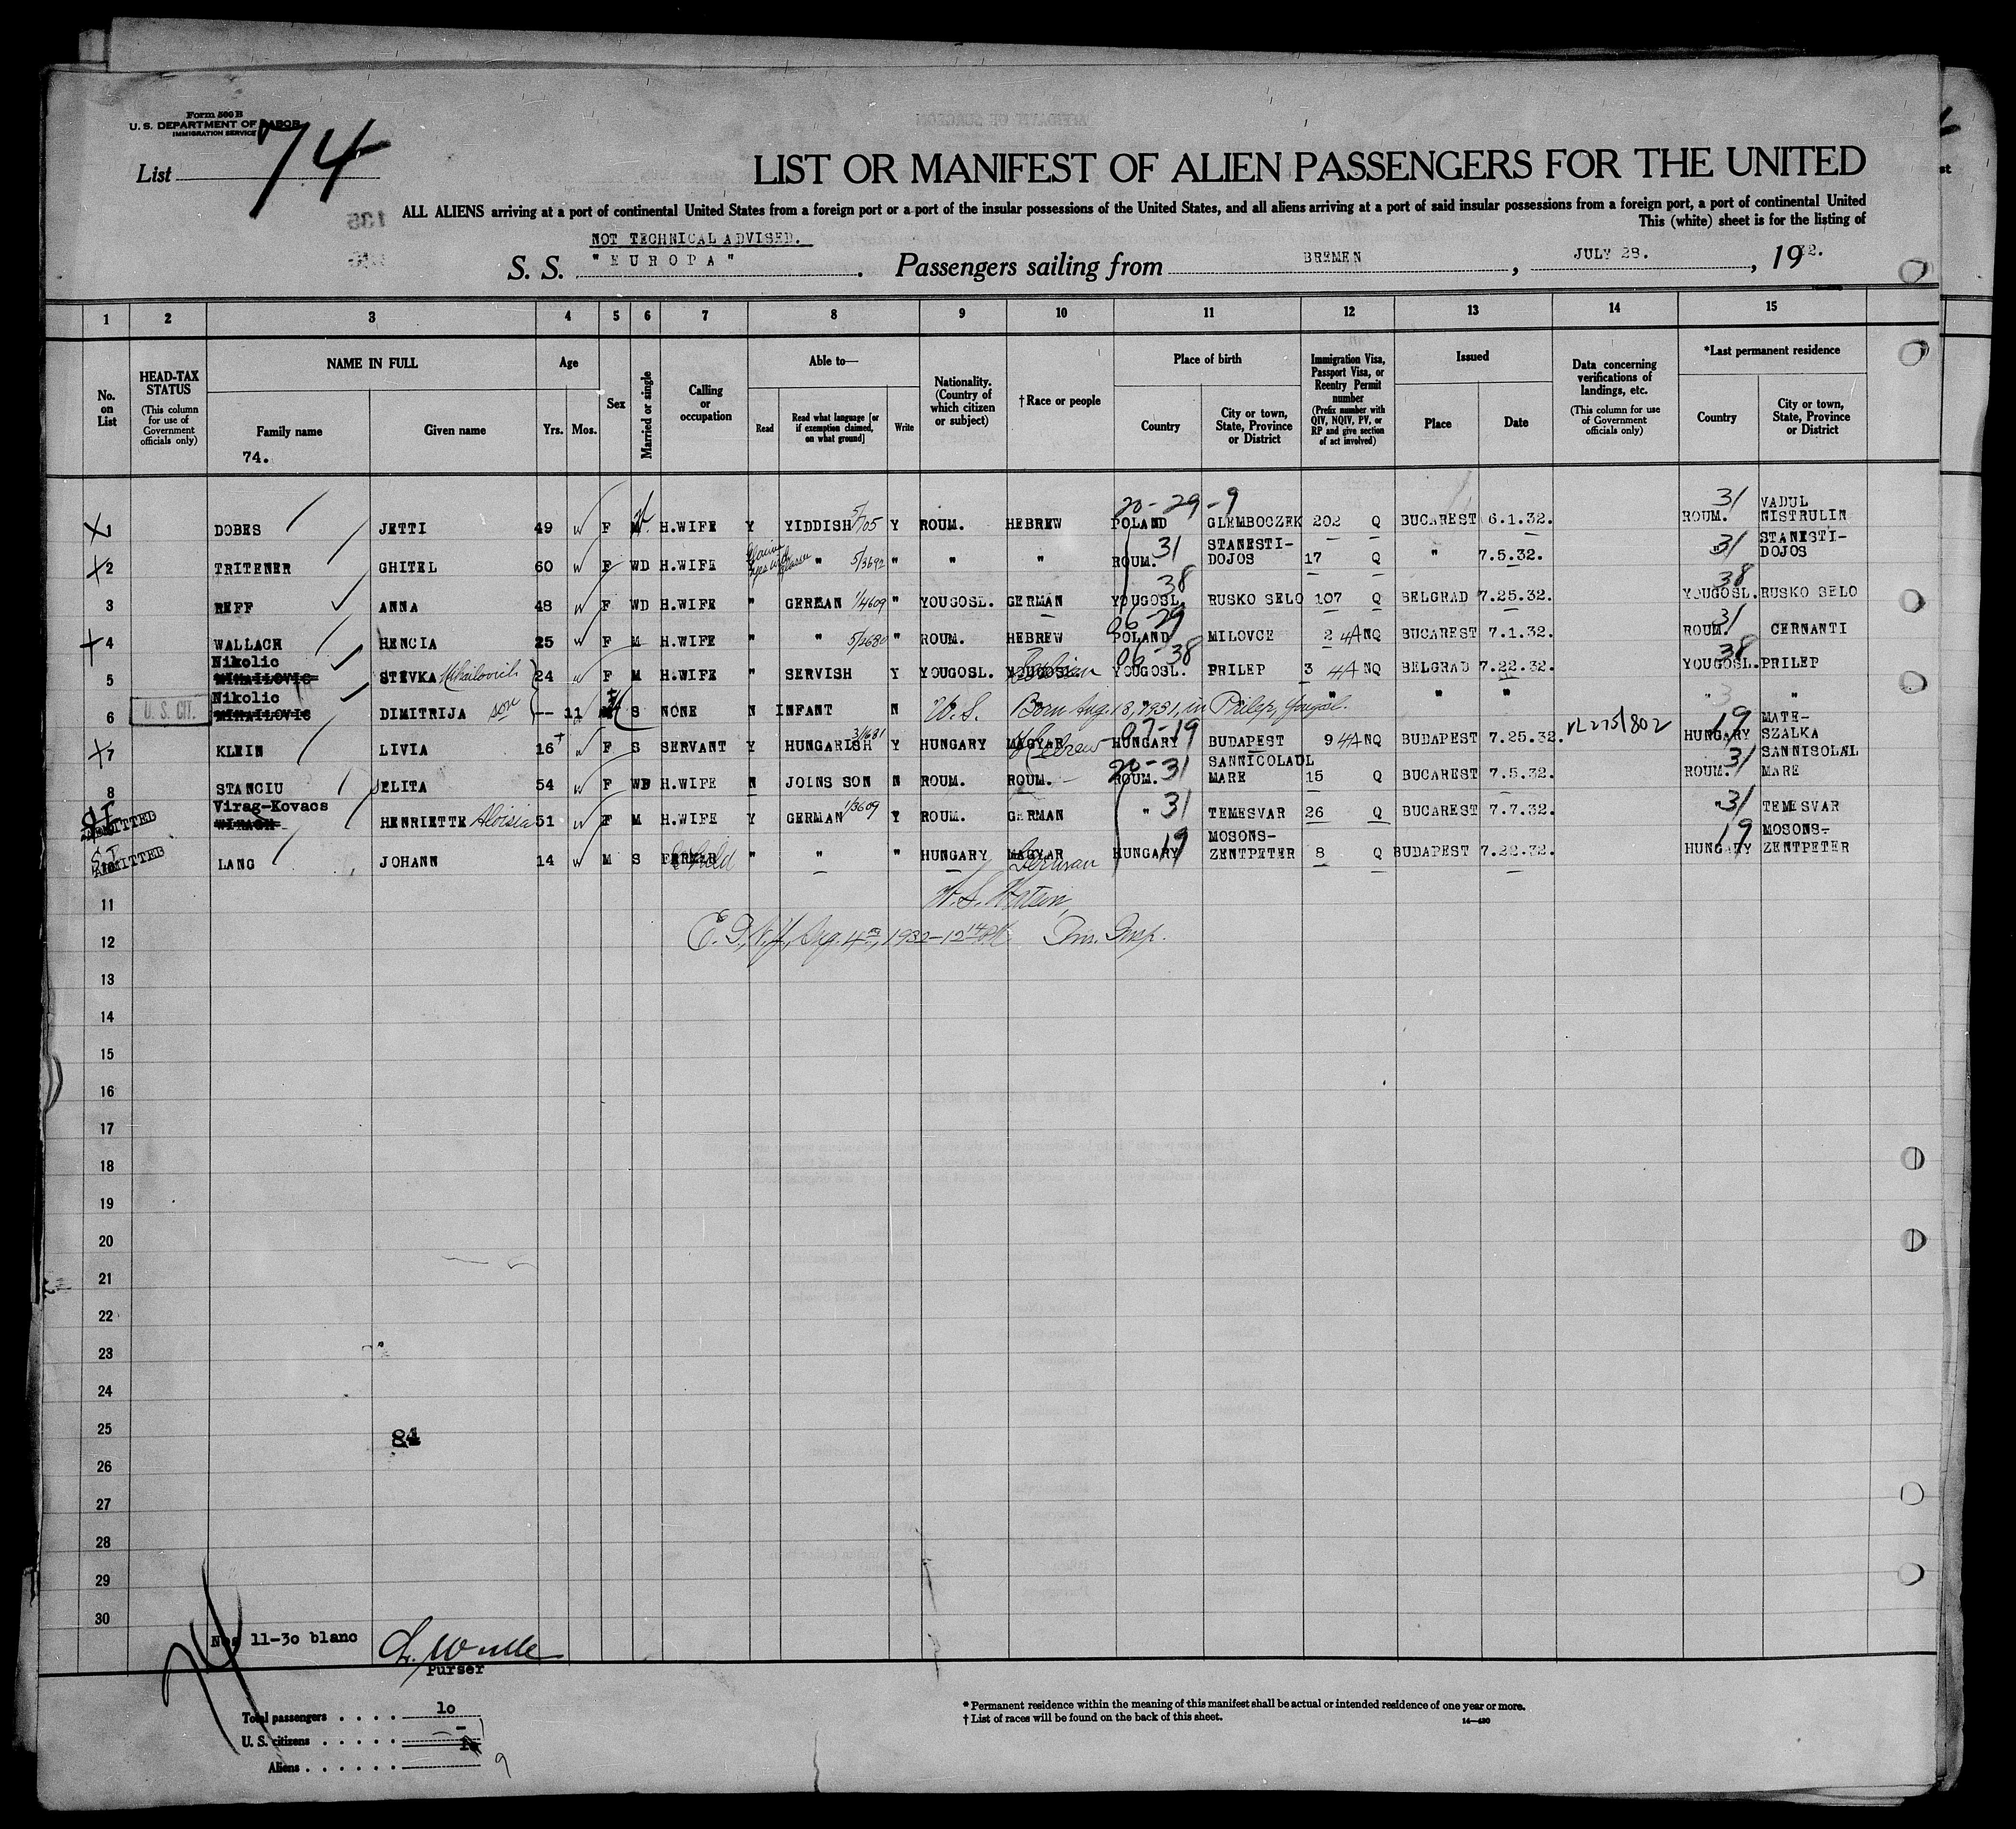 Form 500 B
U. S. DEPARTMENT OF LABOR
IMMIGRATION SERVICE
List 74
LIST OR MANIFEST OF ALIEN PASSENGERS FOR THE UNITED
ALL ALIENS arriving at a port of continental United States from a foreign port or a port of the insular possessions of the United States, and all aliens arriving at a port of said insular possessions from a foreign port, a port of continental United
This (white) sheet is for the listing of
NOT TECHNICAL ADVISED.
S. S. "EUROPA". Passengers sailing from BREMEN, JULY 28., 1932.
1 2 3 4 5 6 7 8 9 10 11 12 13 14 15
No. on List
HEAD-TAX STATUS (This column for use of Government officials only)
NAME IN FULL Family name Given name
74.
Age Yrs. Mos.
Sex
Married or single
Calling or occupation
Able to— Read Read what language [or if exemption claimed, on what ground] Write
Nationality. (Country of which citizen or subject)
†Race or people
Place of birth Country City or town, State, Province or District
Immigration Visa, Passport Visa, or Reentry Permit number (Prefix number with QIV, NQIV, PV, or RP and give section of act involved)
Issued Place Date
Data concerning verifications of landings, etc. (This column for use of Government officials only)
*Last permanent residence Country City or town, State, Province or District
20-29-9
1 DOBES JETTI 49 W F M H.WIFE Y YIDDISH 5/705 Y ROUM. HEBREW POLAND GLEMBOCZEK 202 Q BUCAREST 6.1.32. ROUM. 31 VADUL NISTRULIN
2 TRITENER GHITEL 60 W F WD H.WIFE " 5/3692 " " " ROUM. 31 STANESTI-DOJOS 17 Q " 7.5.32. " 31 STANESTI-DOJOS
3 REFF ANNA 48 W F WD H.WIFE " GERMAN 1/4609 " YOUGOSL. GERMAN YOUGOSL. 38 RUSKO SELO 107 Q BELGRAD 7.25.32. YOUGOSL. 38 RUSKO SELO
4 WALLACH HENCIA 25 W F M H.WIFE " " 5/2680 " ROUM. HEBREW POLAND 06-29 MILOVCE 2 4A NQ BUCAREST 7.1.32. ROUM. 31 CERNANTI
5 Nikolic MIHAILOVIC STEVKA Mihailovich 24 W F M H.WIFE " SERVISH Y YOUGOSL. YOUGOSL. Serbian YOUGOSL. 06-38 PRILEP 3 4A NQ BELGRAD 7.22.32. YOUGOSL. 38 PRILEP
6 U. S. CIT. Nikolic MIHAILOVIC DIMITRIJA son -- 11 M S NONE N INFANT N U.S. Born Aug. 18, 1931, in Prilep, Yougosl. " " " " "
7 KLEIN LIVIA 16 W F S SERVANT Y HUNGARISH 3/1681 Y HUNGARY MAGYAR Hebrew HUNGARY 07-19 BUDAPEST 9 4A NQ BUDAPEST 7.25.32. VL 275/802 HUNGARY 19 MATE-SZALKA
8 STANCIU ELITA 54 W F WD H.WIFE N JOINS SON N ROUM. ROUM. ROUM. 20-31 SANNICOLAUL MARE 15 Q BUCAREST 7.5.32. ROUM. 31 SANNISOLAL MARE
SI ADMITTED Virag-Kovacs WIRAGH HENRIETTE Aloisia 51 W F M H.WIFE Y GERMAN 1/3609 Y ROUM. GERMAN " 31 TEMESVAR 26 Q BUCAREST 7.7.32. " 31 TEMESVAR
SI ADMITTED LANG JOHANN 14 W M S FARMER Child " " " HUNGARY MAGYAR German HUNGARY 19 MOSONS-ZENTPETER 8 Q BUDAPEST 7.22.32. HUNGARY 19 MOSONS-ZENTPETER
11
12 Aug. 4th, 1932 Im. Insp.
13
14
15
16
17
18
19
20
21
22
23
24
25
84
26
27
28
29
30
Nos 11-30 blanc
Purser
74
Total passengers . . . . 10
U. S. citizens . . . . . -
Aliens . . . . . . 9
* Permanent residence within the meaning of this manifest shall be actual or intended residence of one year or more.
† List of races will be found on the back of this sheet.
14—430